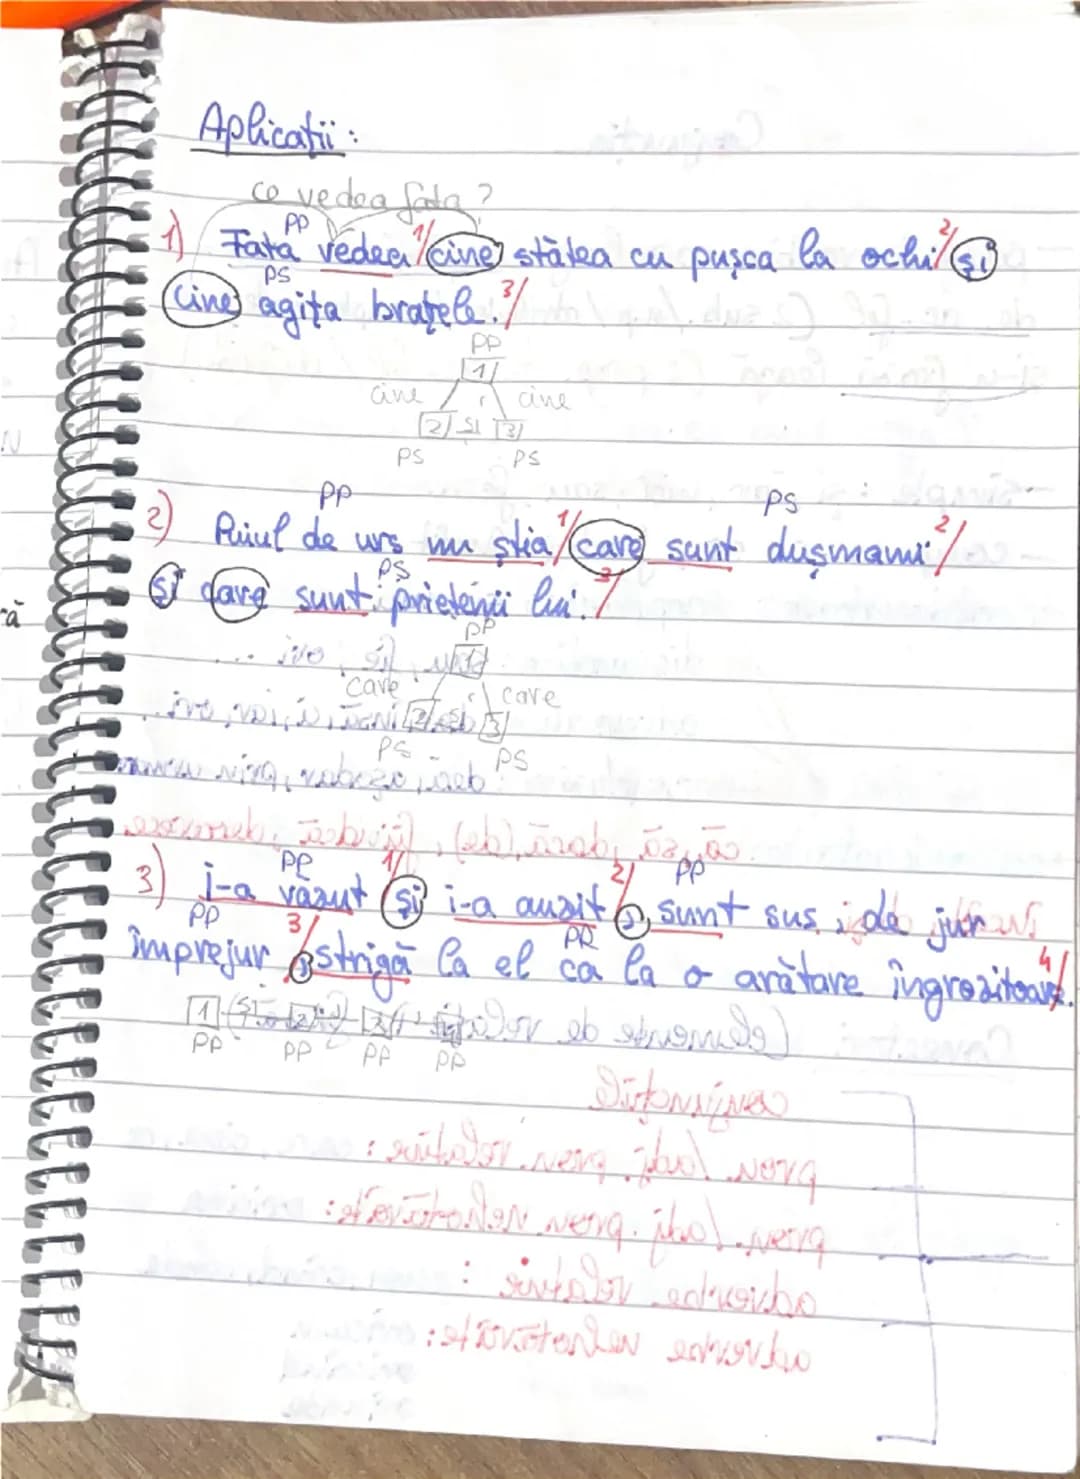 Aplicații:
ce vedea fata?
PP
1) Fata vedea 1/ cine stătea cu pușca la ochi 2/ și
PS
cine agița brațele. 3/
PP
1
cine cine
2 și 3
PS PS
PP PS
2) Puiul de urs nu știa 1/ care sunt dușmanii 2/
PS
și care sunt prietenii lui. 3/
PP
1
care care
2 și 3
PS PS
PP PP
3) i-a văzut 1/ și i-a auzit 2/ , sunt sus, de jur
PP PP
împrejur 3/ , strigă la el ca la o arătare îngrozitoare. 4/
1 și 2 3 4
PP PP PP PP